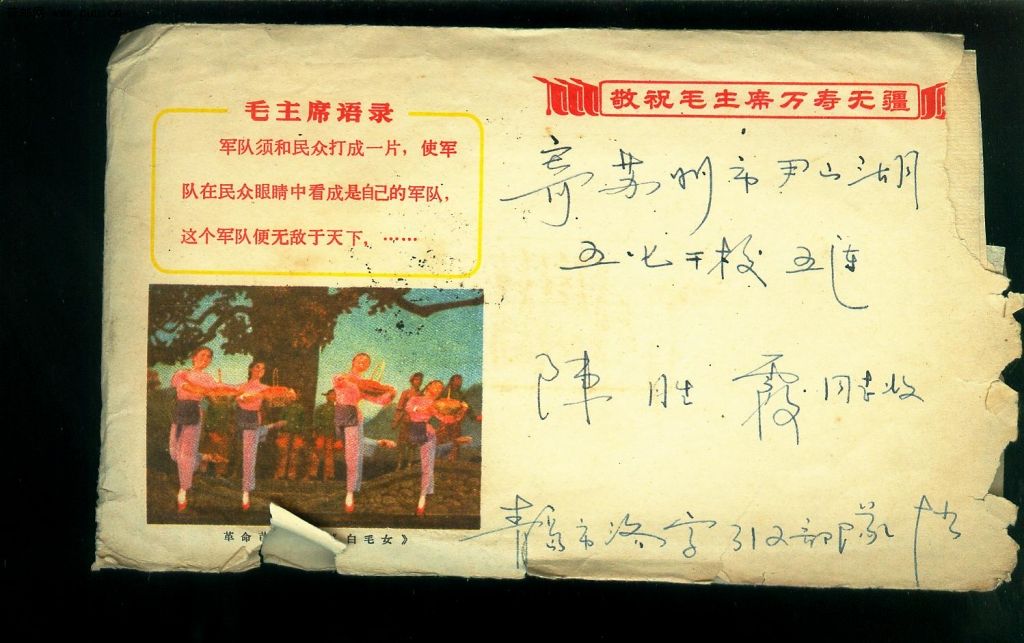 敬祝毛主席万寿无疆
毛主席语录
军队须和民众打成一片，使军
队在民众眼睛中看成是自己的军队，
这个军队便无敌于天下，……
寄苏州市尹山湖
五·七干校 五连
陈胜霞同志收
革命 白毛女》
青岛市洛字 部队